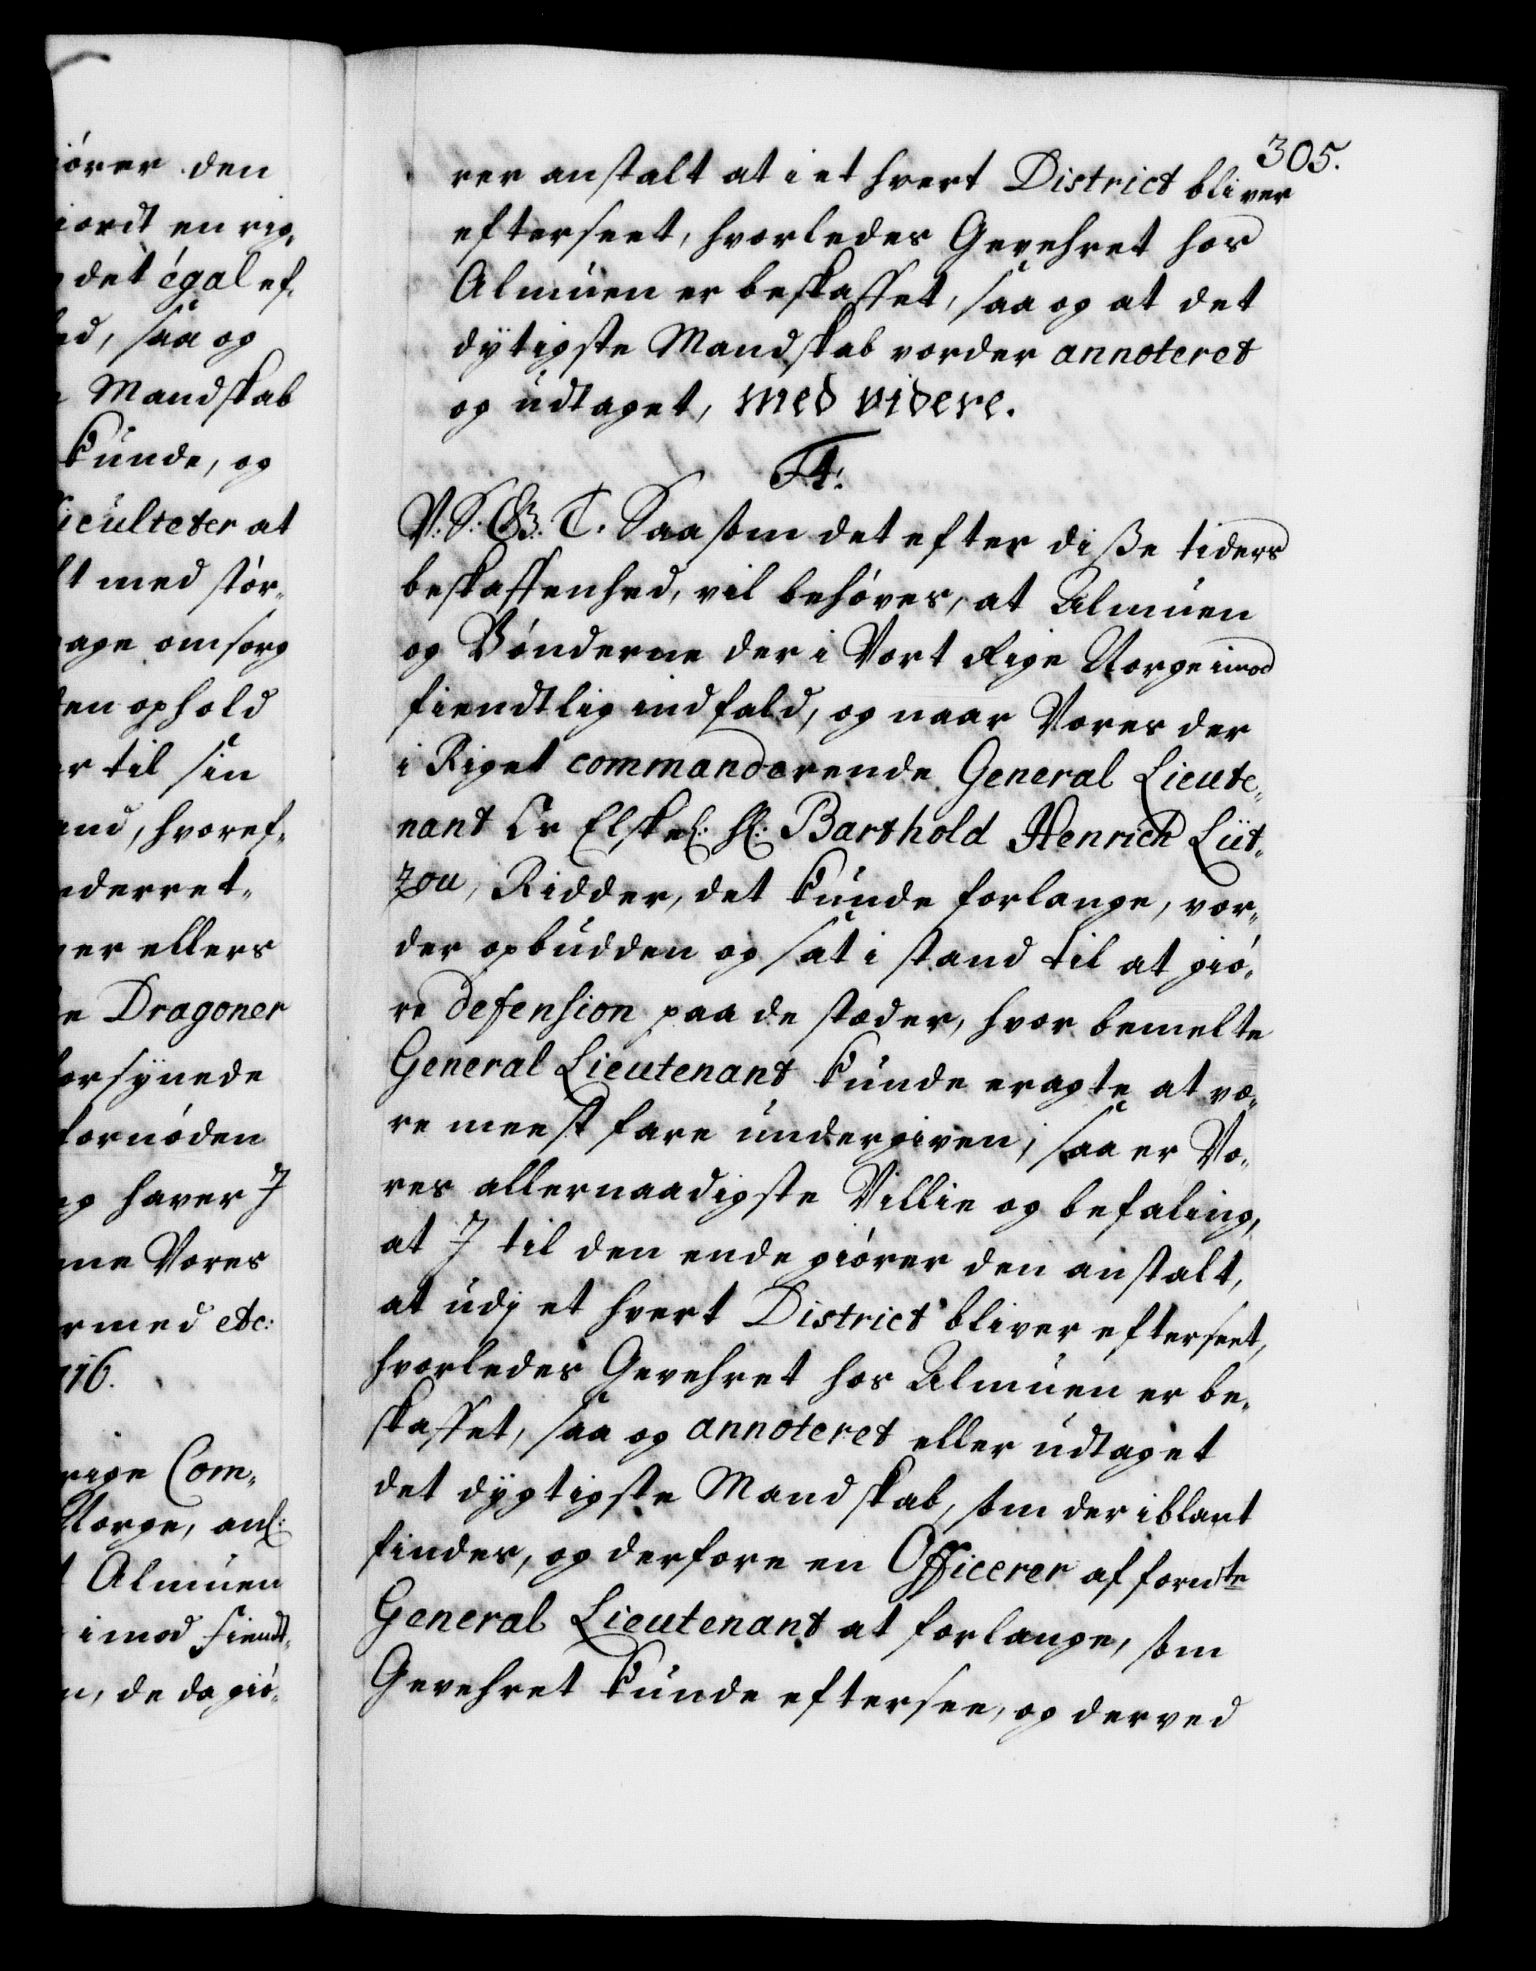 iører den
iordt en rig-
det égal ef-
ed, saa og
Mandskab
kunde, og
ficulteter at
lt med stör-
age omsorg
den ophold
er til sin
and, hvoref-
nderret-
er ellers
e Dragoner
forsynede
fornöden
og haver I
ne Vores
rmed etc:
716.
rige Com-
Norge, anl:
Almuen
imod fiendt-
n, de da giö-
305.
rer anstalt at i et hvert District bliver
efterseet, hvorledes Gevehret hos
Almuen er beskaffet, saa og at det
dytigste Mandskab vorder annoteret
og udtaget, med videre.
F4:
V. S: G: T. Saa som det efter diße tiders
beskaffenhed, vil behöves, at Almuen
og Bönderne der i Vort Rige Norge imod
fiendtlig indfald, og naar Vores der
i Riget commanderende General Lieute-
nant Os Elskel: Hl: Barthold Henrich Lüt-
zou, Ridder, det kunde forlange, vor-
der opbudden og sat i stand til at giö-
re defension paa de stæder, hvor bemelte
General Lieutenant kunde eragte at væ-
re meest fare undergiven; saa er Vo-
res allernaadigste Villie og befaling,
at I til den ende giörer den anstalt,
at udj et hvert District bliver efterseet,
hvorledes Gevehret hos Almuen er be-
skaffet, saa og annoteret eller udtaget
det dygtigste Mandskab, som der iblant
findes, og derfore en Officerer af fornte
General Lieutenant at forlange, som
Gevehret kunde eftersee, og derved